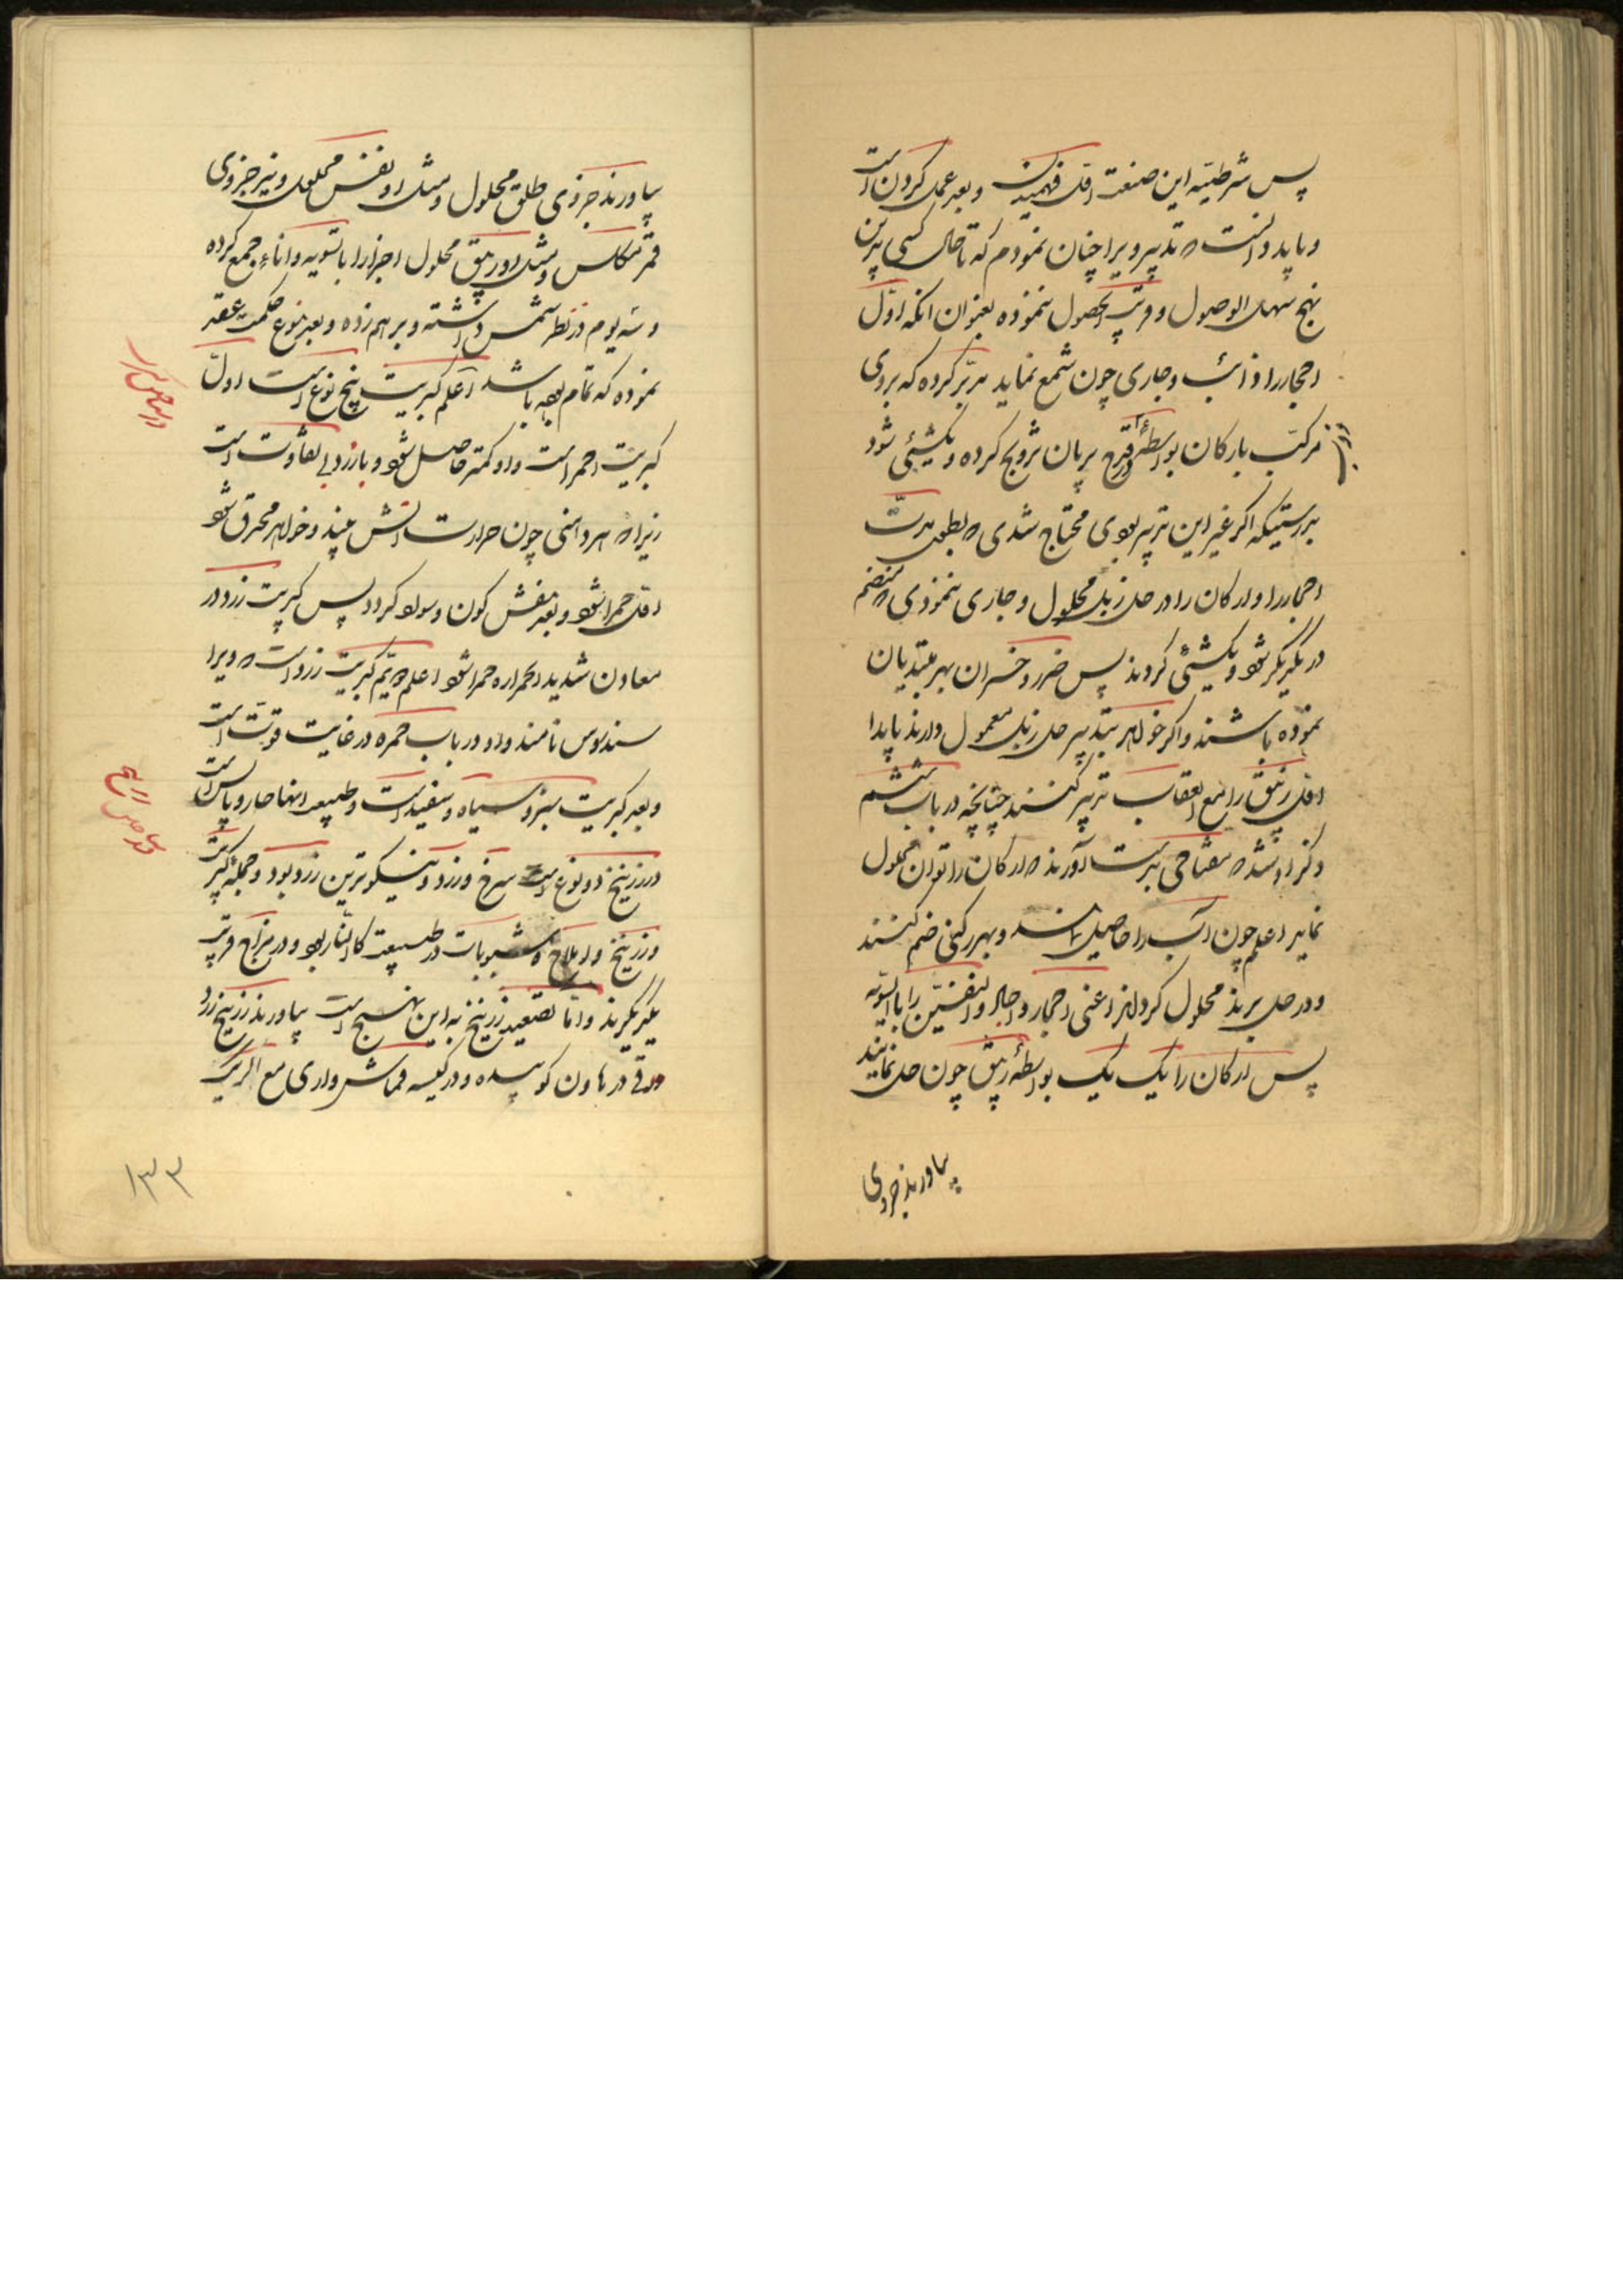 پس شرطیه این صنعت اول فهمیدن و بعد عمل کردن است
و باید دانست که تدبیر ویرا چنان نمودم که تا حال کسی بدین
نهج سهل الوصول و قریب الحصول ننموده بعنوان انکه اوّل
احجار را ذائب و جاری چون شمع نماید مدبّر کرده که بروی
مرکب بارکان بواسطهٔ بریان تزویج کرده و یکشیئی شود
بدرستیکه اکر غیر این تدبیر بودی محتاج شدی که بطول مدتّ
احجار را و ارکان را در حل زبل محلول و جاری بنمودی که منضم
در یکدیکر شود و یکشیئی کردند پس ضرر و خسران بهر مبتدیان
نموده باشند و اکر خواهر بتدبیر حل زبل معمول دارند باید
اول زیبق را مع العقاب تدبیر کنند چنانچه در باب ششم
ذکر او شد که مفتاحی بدست آورند که ارکان را توان محلول
نماید اعلم چون آب را حاصل نمایند و بهر رکنی ضم کنند
و در حل برند محلول کردانند اعنی احجار و اجساد و النفسین را بالتسویه
پس ارکان را یک یک بواسطهٔ زیبق چون حل نمایند
بیاورند جزوی
بیاورند جزوی طلق محلول و مثل او نفس محلول و نیز جزوی
قمر مکلس و مثل او زیبق محلول اجزا را با تسویه و اناء جمع کرده
و سه یوم در نظر شمس داشته و برهم زده و بعد بنوع حکمت عقد
نموده که تمام بهه باشد اعلم کبریت پنج نوع است اولّ
کبریت احمر است و او کمتر حاصل شود و با زر دبی تفاوت است
زیرا که هر دانی چون حرارت آتش بیند و خواهر محترق شود
اول حمرا شود و بعد بنفش کون و سواد کردد پس کبریت زرد در
معادن شدید الحراره حمرا شود اعلم دیّم کبریت زرد است که ویرا
سندبوس نامند و او در باب حمره در غایت قوت است
و بعد کبریت سبز و سیاه و سفید است و طبیعه اینها حار و یابس است
و زرنیخ دو نوع است سرخ و زرد و نیکوترین زرد بود و جمله کبریت
و زرنیخ و املاح و شبوبات در طبیعت کالنار بود و در مزاج قریب
یکدیکرند و امّا تصعید زرنیخ به این نهج است بیاورند زرنیخ زرد
ورقی در هاون کوبیده و در کیسه قماش داری مع الریک
۱۳۳